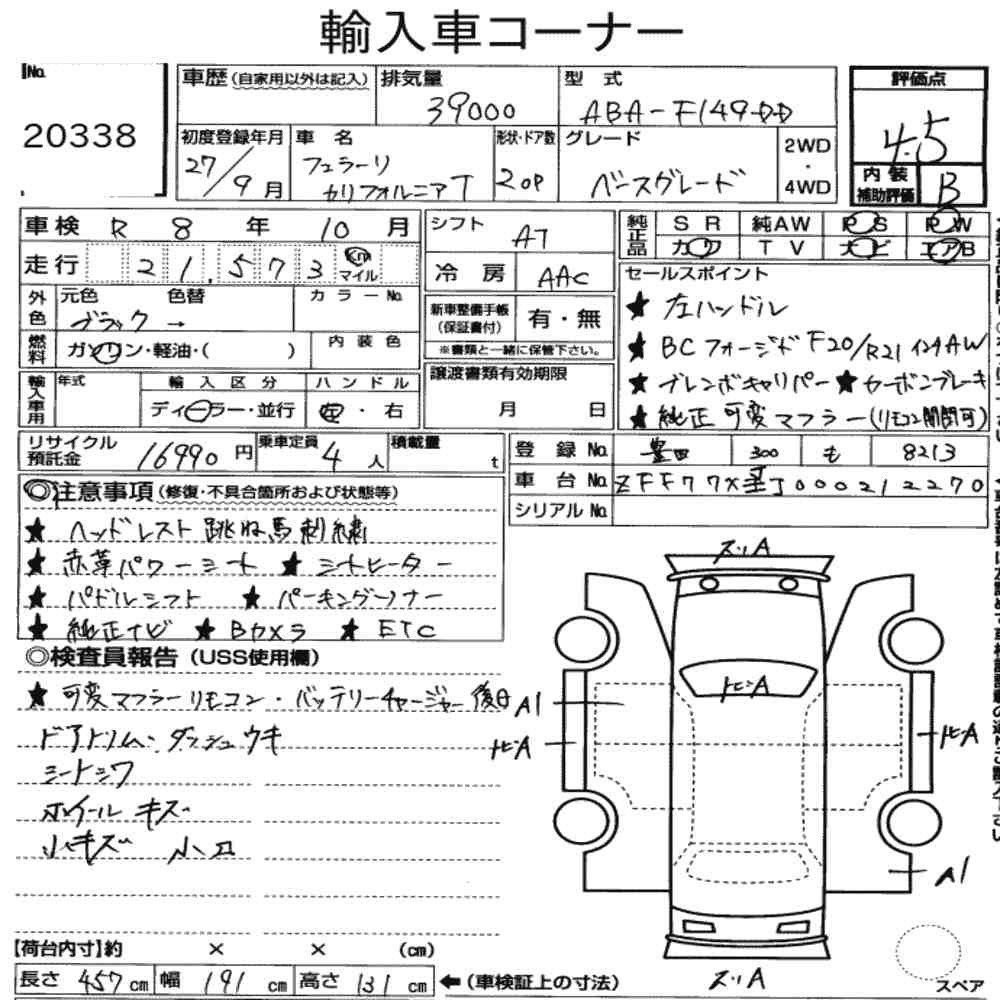 輸入車コーナー
No.
20338
車歴 (自家用以外は記入)
排気量
39000
型 式
ABA-F149DD
評価点
4.5
内装補助評価
B
初度登録年月
27/9月
車 名
フェラーリ
カリフォルニア T
形状・ドア数
2OP
グレード
ベースグレード
2WD
・
4WD
車検 R 8 年 10 月
走行 21,573 km マイル
外色
元色 色替
ブラック →
カラーNo.
燃料
ガソリン・軽油・( )
内装色
輸入車用
年式
輸入区分
ディーラー・並行
ハンドル
左・右
シフト
AT
冷房
AAC
新車整備手帳
(保証書付)
有・無
※書類と一緒に保管下さい。
譲渡書類有効期限
月 日
純正品
SR 純AW PS PW
カワ TV ナビ エアB
セールスポイント
★ 左ハンドル
★ BCフォージド F20/R21インチAW
★ ブレンボキャリパー ★ カーボンブレーキ
★ 純正可変マフラー(リモコン開閉可)
リサイクル預託金 16990 円
乗車定員 4 人
積載量 t
登録No. 豊田 300 も 8213
車台No. ZFF77XJ000212270
シリアルNo.
◎注意事項 (修復・不具合箇所および状態等)
★ ヘッドレスト 跳ね馬刺繍
★ 赤革パワーシート ★ シートヒーター
★ パドルシフト ★ パーキングソナー
★ 純正ナビ ★ Bカメラ ★ ETC
◎検査員報告 (USS使用欄)
★ 可変マフラーリモコン・バッテリーチャージャー後日
ドアトリム・ダッシュウキ
シートシワ
ホイールキズ
小キズ 小凹
ズリA
トビA
A1
トビA
トビA
A1
ズリA
スペア
【荷台内寸】約 × × (cm)
長さ 457 cm 幅 191 cm 高さ 131 cm ←(車検証上の寸法)